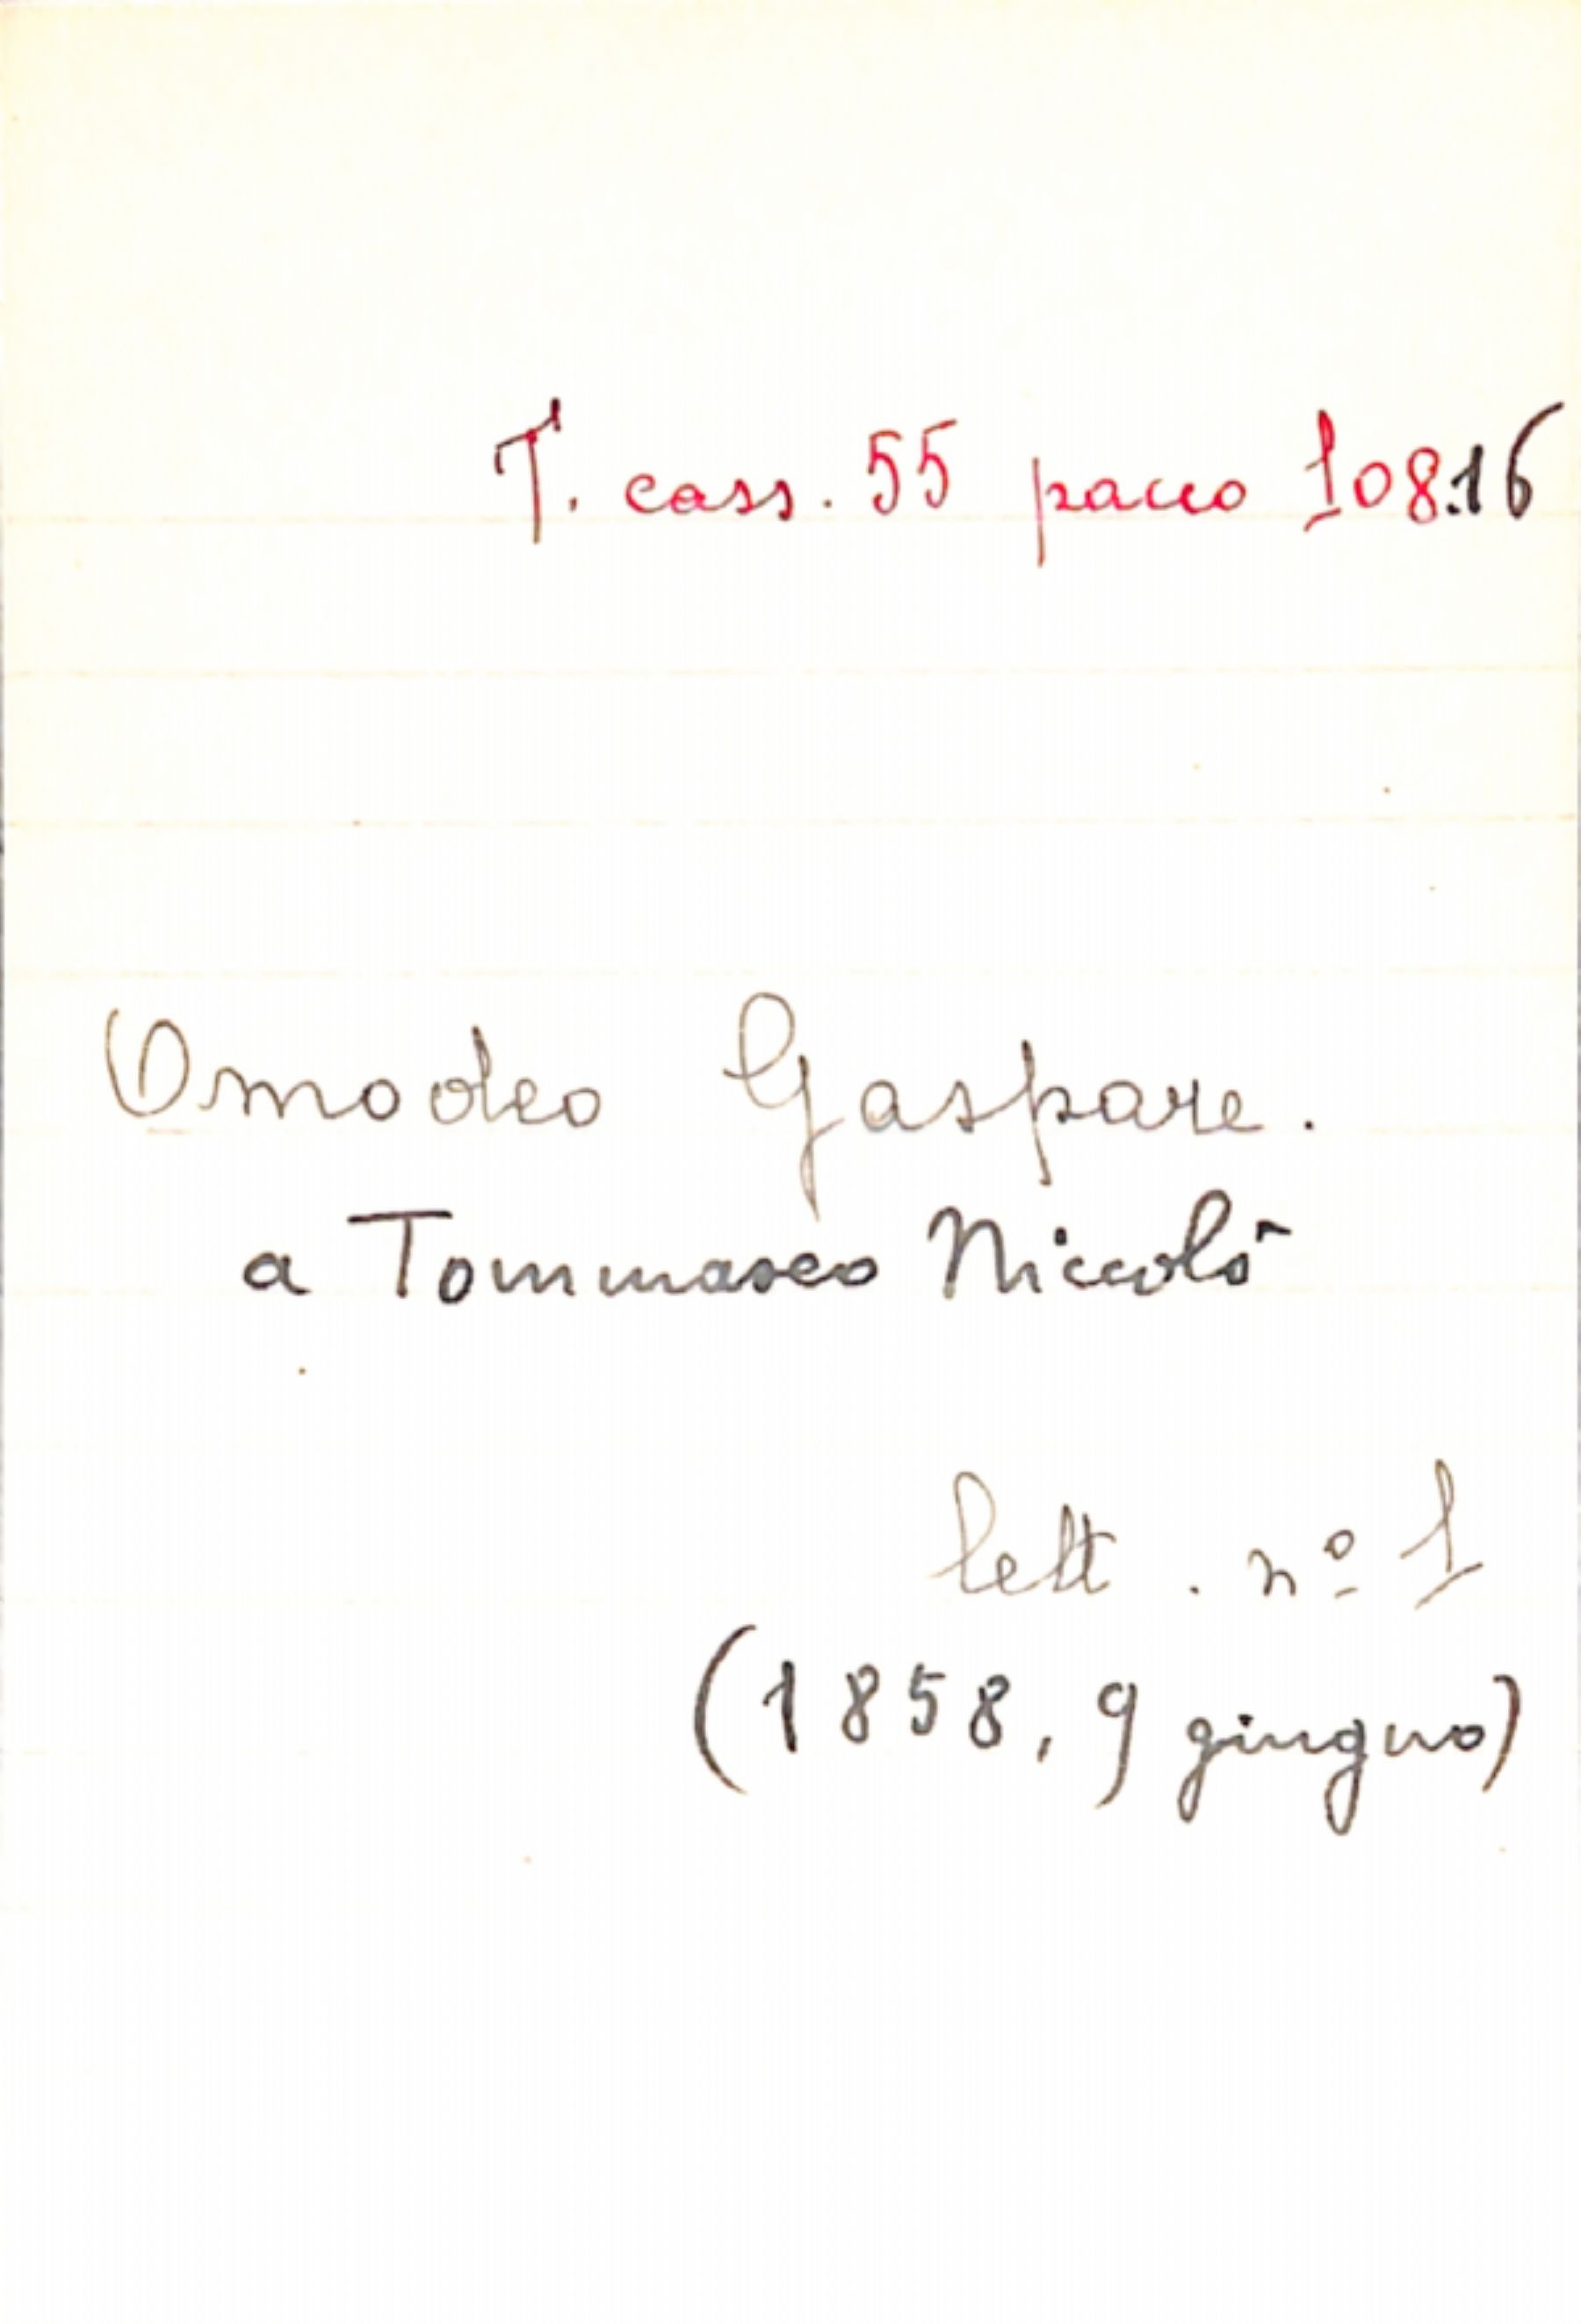 T. cass. 55 pacco 108.16
Omodeo Gaspare.
a Tommaseo Niccolò
lett. nº 1
(1858, 9 giugno)